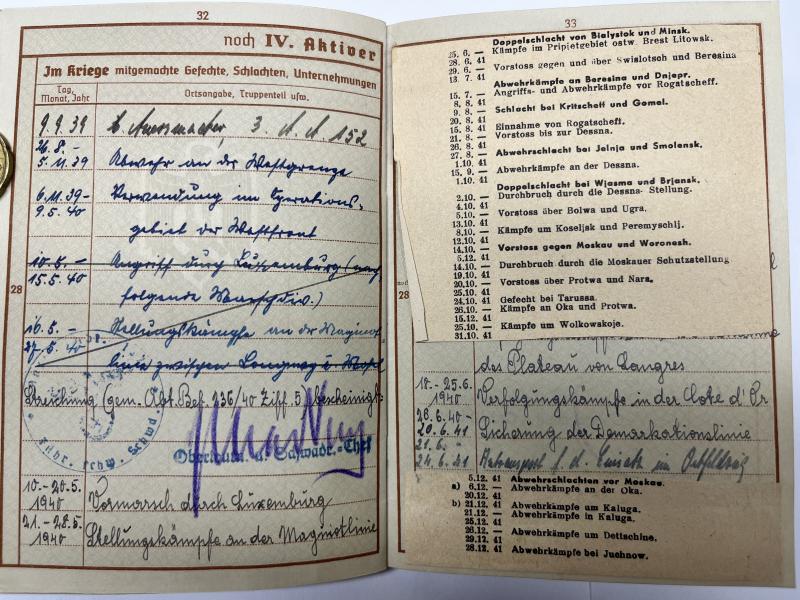 32
noch IV. Aktiver
Im Kriege mitgemachte Gefechte, Schlachten, Unternehmungen
Tag, Monat, Jahr
Ortsangabe, Truppenteil usw.
9.9.39 3. A.A. 152
26.8.-
5.11.39 Abwehr an der Westgrenze
6.11.39-
9.5.40 Verwendung im Operations-
gebiet der Westfront
10.5.-
15.5.40 Angriff durch Luxemburg (nach-
folgende Marschdiv.)
16.5.-
27.5.40 Stellungskämpfe an der Maginot-
linie zwischen Longwy u.
28
Streichung gem. Rgt. Bef. 236/40 Ziff. 5 bescheinigt
Oberleutn. u. Schwadr.-Chef
10.-20.5.
1940 Vormarsch durch Luxemburg
21.-28.5.
1940 Stellungskämpfe an der Maginotlinie
33
Doppelschlacht von Bialystok und Minsk.
25. 6. — Kämpfe im Pripjetgebiet ostw. Brest Litowsk.
28. 6. 41
29. 6. — Vorstoss gegen und über Swislotsch und Beresina
13. 7. 41
Abwehrkämpfe an Beresina und Dnjepr.
15. 7. — Angriffs- und Abwehrkämpfe vor Rogatscheff.
8. 8. 41
8. 8. — Schlacht bei Kritscheff und Gomel.
9. 8. —
20. 8. 41 Einnahme von Rogatscheff.
15. 8. — Vorstoss bis zur Dessna.
21. 8. —
26. 8. 41
27. 8. — Abwehrschlacht bei Jelnja und Smolensk.
1.10. 41
15. 9. — Abwehrkämpfe an der Dessna.
1.10. 41
Doppelschlacht bei Wjasma und Brjansk.
2.10. — Durchbruch durch die Dessna-Stellung.
4.10. 41
5.10. — Vorstoss über Bolwa und Ugra.
13.10. 41
8.10. — Kämpfe um Koseljsk und Peremyschlj.
12.10. 41
14.10. — Vorstoss gegen Moskau und Woronesh.
5.12. 41
14.10. — Durchbruch durch die Moskauer Schutzstellung
19.10. 41
20.10. — Vorstoss über Protwa und Nara.
25.10. 41
24.10. — Gefecht bei Tarussa.
26.10. — Kämpfe an Oka und Protwa.
15.12. 41
25.10. — Kämpfe um Wolkowskoje.
31.10. 41
28
des Plateau von Langres
18.-25.6.
1940 Verfolgungskämpfe in der Cote d'Or
26.6.40-
20.6.41 Sicherung der Demarkationslinie
21.6.-
24.6.41
5.12. 41 Abwehrschlachten vor Moskau.
a) 6.12. — Abwehrkämpfe an der Oka.
20.12. 41
b) 21.12. 41 Abwehrkämpfe um Kaluga.
21.12. — Abwehrkämpfe in Kaluga.
25.12. 41
26.12. — Abwehrkämpfe um Dettschine.
29.12. 41
28.12. 41 Abwehrkämpfe bei Juchnow.